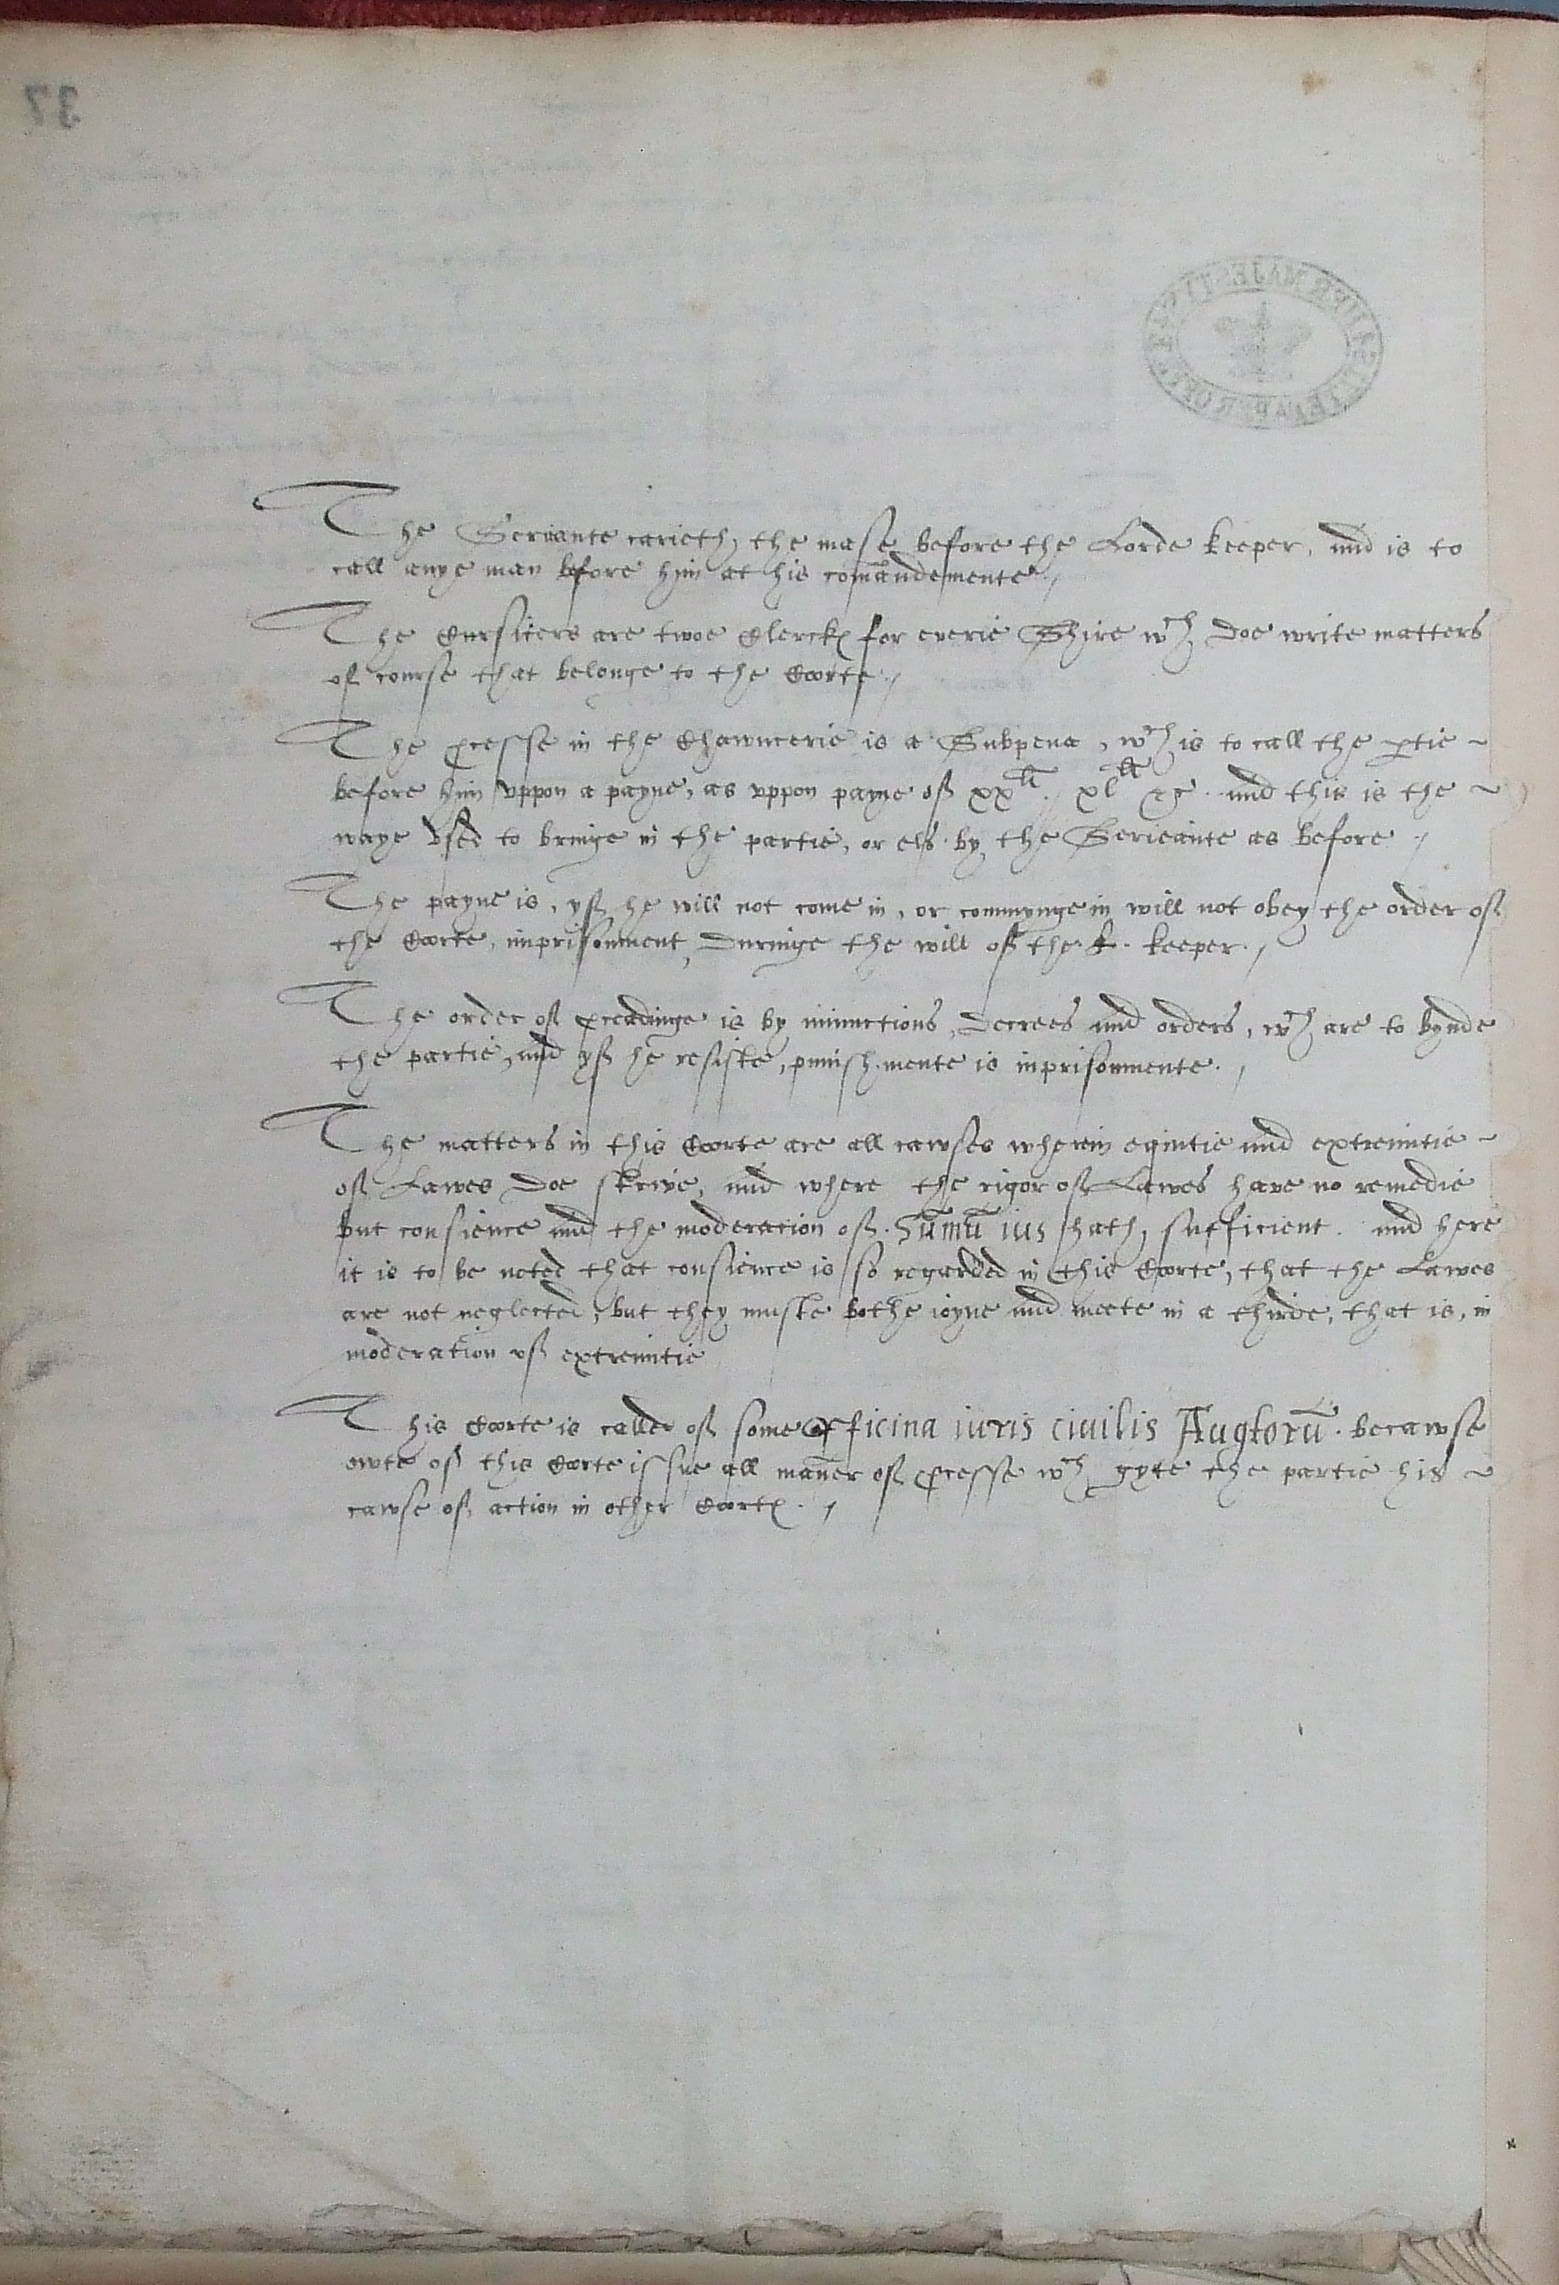 The Seriante carieth, the mase before the Lorde keeper, and is to
call anye man before him at his com̄andemente.
The Cursiters are twoe Clerckꝭ for everie Shire wᶜʰ doe write matters
of course that belonge to the Coorte.
The ꝓcesse in the Chawncerie is a Subpena, wᶜʰ is to call the ꝑtie
before him vppon a payne, as vppon payne of xxˡⁱ. xlˡⁱ &c. and this is the
waye vsed to bringe in the partie, or els by the Serieante as before.
The payne is, yf he will not come in, or commynge in will not obey the order of
the Coorte, imprisonment, duringe the will of the L. keeper.
The order of ꝓcedinge is by iniunctions, decrees and orders, wᶜʰ are to bynde
the partie, and yf he resiste, punishmente is inprisonmente.
The matters in this Coorte are all cawses wherein equitie and extremitie
of Lawes doe strive, and where the rigor of Lawes have no remedie
but consience and the moderacion of. Sum̄ū ius hath, sufficient. and here
it is to be noted that consience is so regarded in this Coorte, that the Lawes
are not neglected, but they muste bothe ioyne and meete in a thirde, that is, in
moderation of extremitie
This Coorte is called of some officina iuris ciuilis Anglorū. becawse
owte of this Coorte issue all man̄er of ꝓcesse wᶜʰ gyve the partie his
cawse of action in other Coortꝭ.